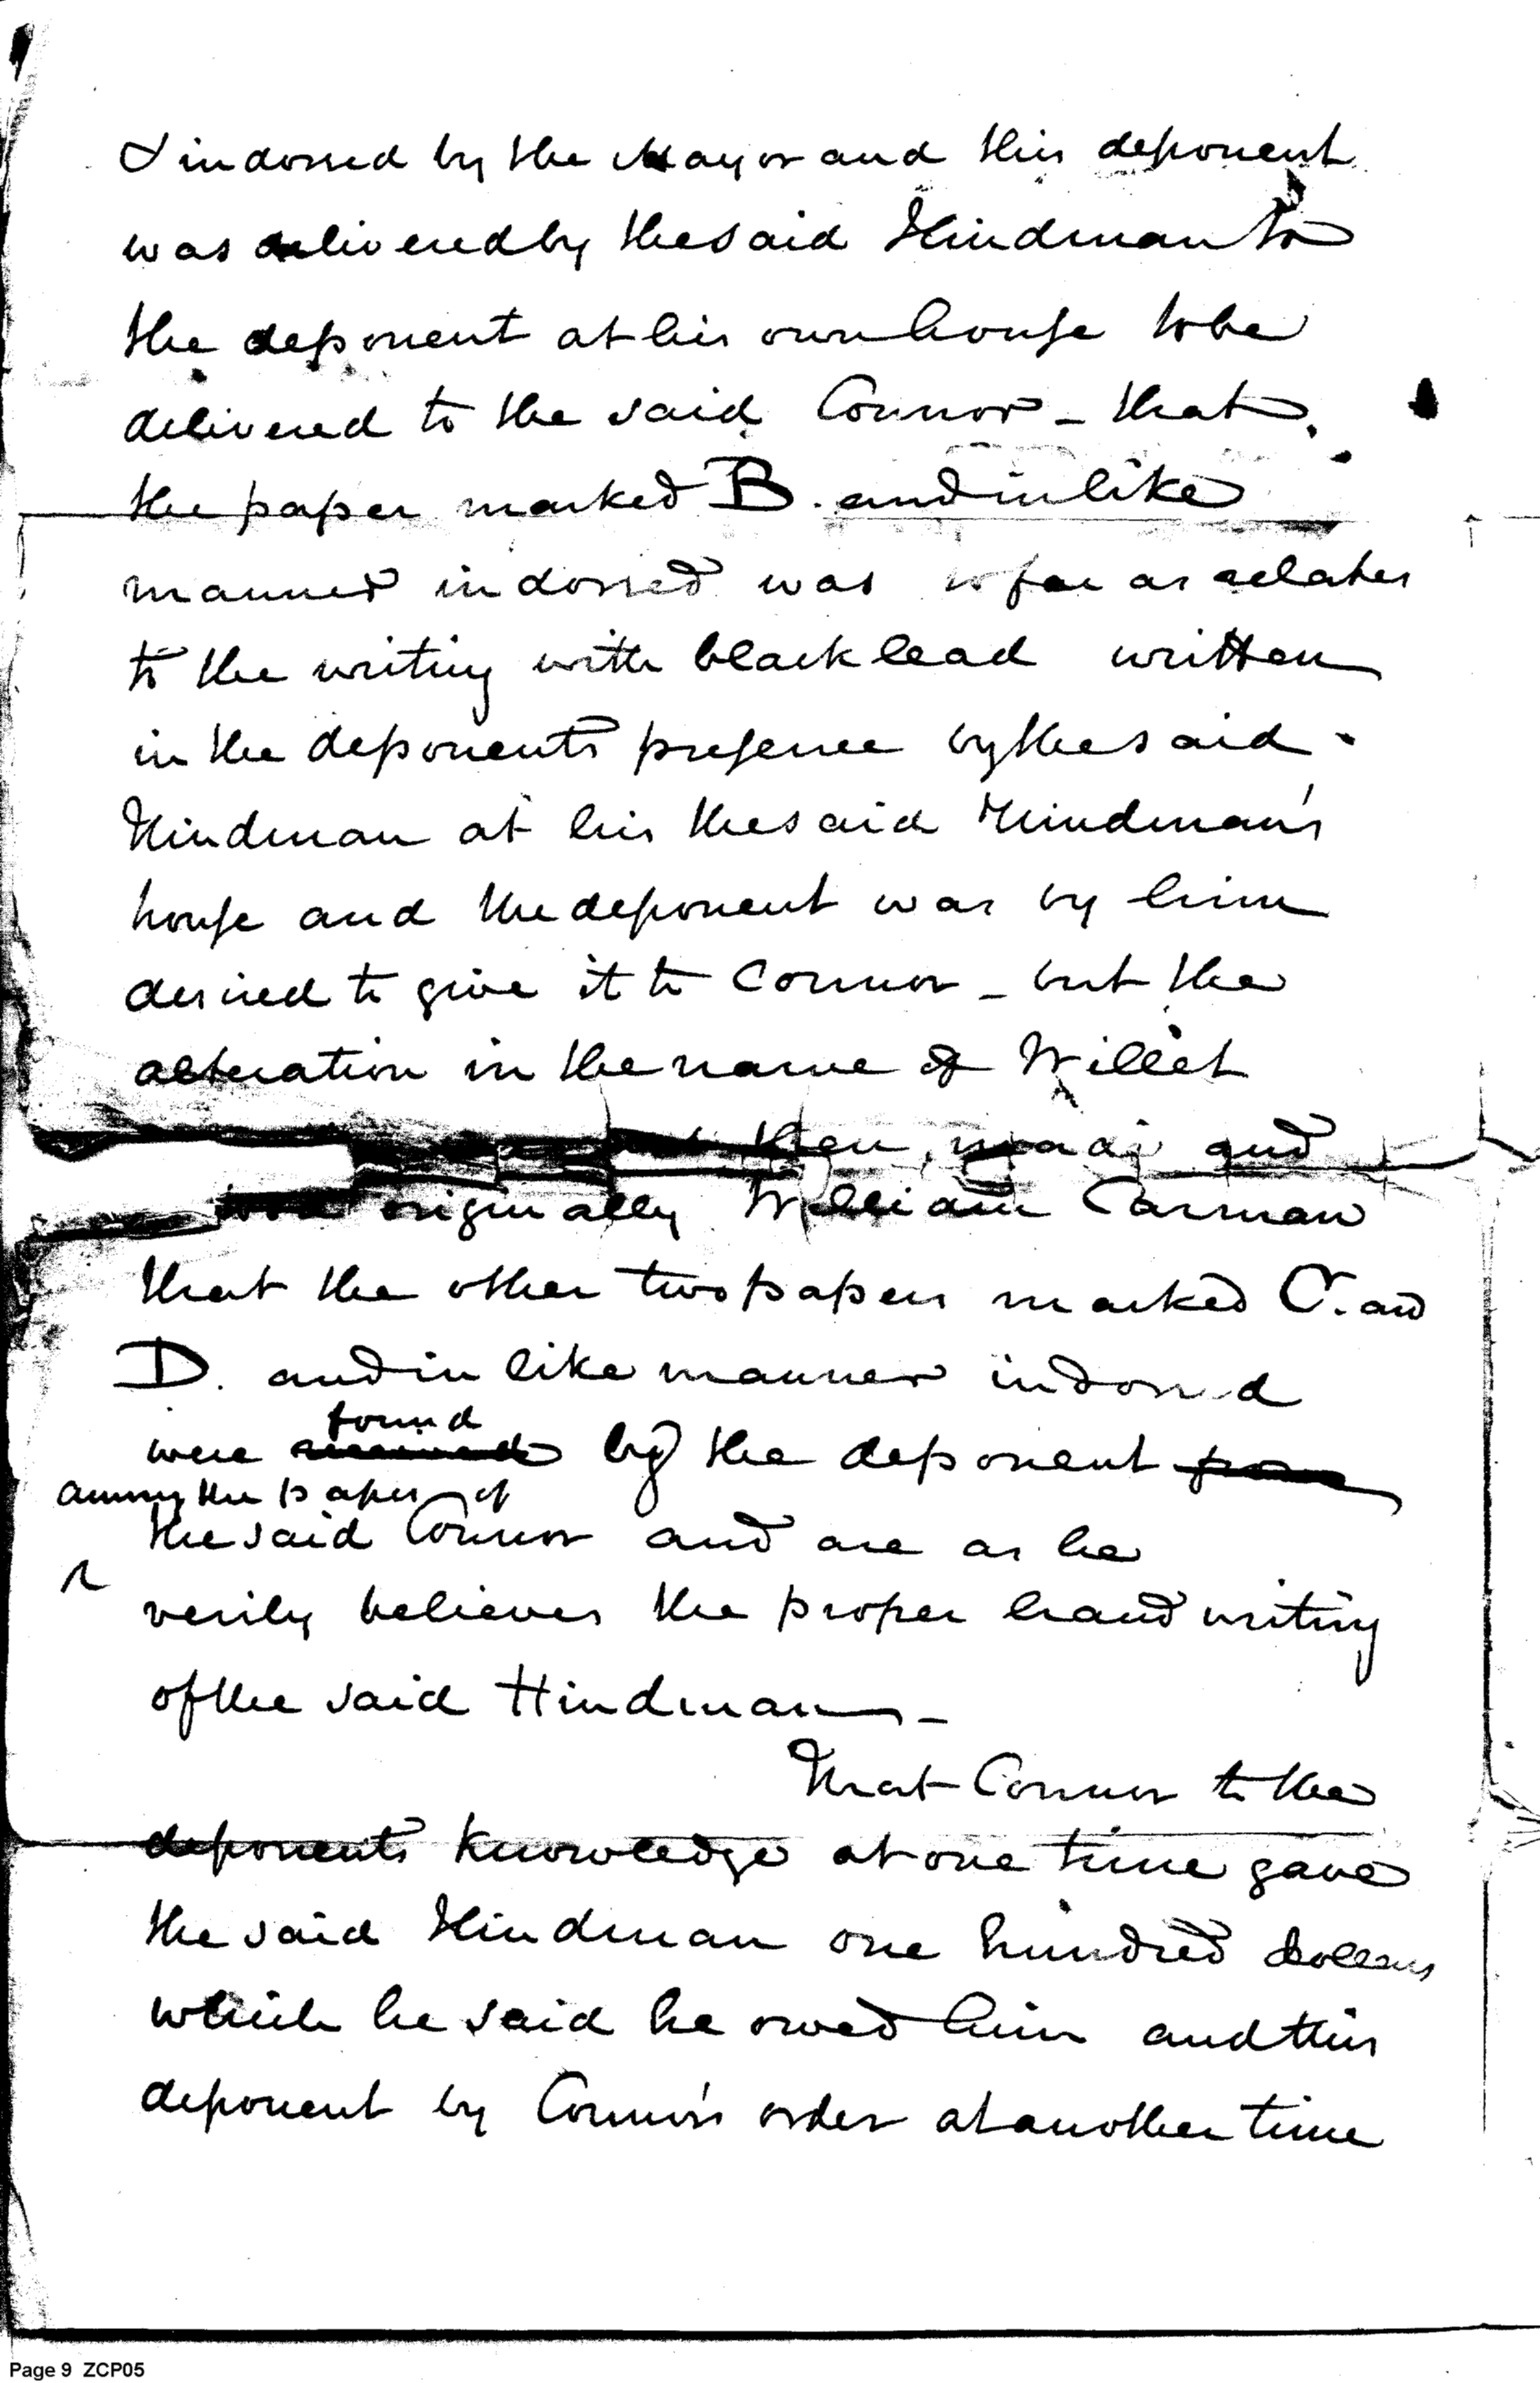 & indorsed by the Mayor and this deponent
was delivered by the said Hindman to
the deponent at his own house to be
delivered to the said Connor – that
the paper marked B. and in like
manner indorsed was so far as relates
to the writing with black lead written
in the deponents presence by the said
Hindman at his the said Hindman's
house and the deponent was by him
desired to give it to Connor – but the
alteration in the name of Willet
then made and
was originally William Carman
that the other two papers marked C. and
D. and in like manner indorsed
were received found by the deponent from
among the papers of
the said Connor and are as he
verily believes the proper hand writing
of the said Hindman –
That Connor to the
deponents knowledge at one time gave
the said Hindman one hundred dollars
which he said he owed him and this
deponent by Connor's order at another time
Page 9 ZCP05